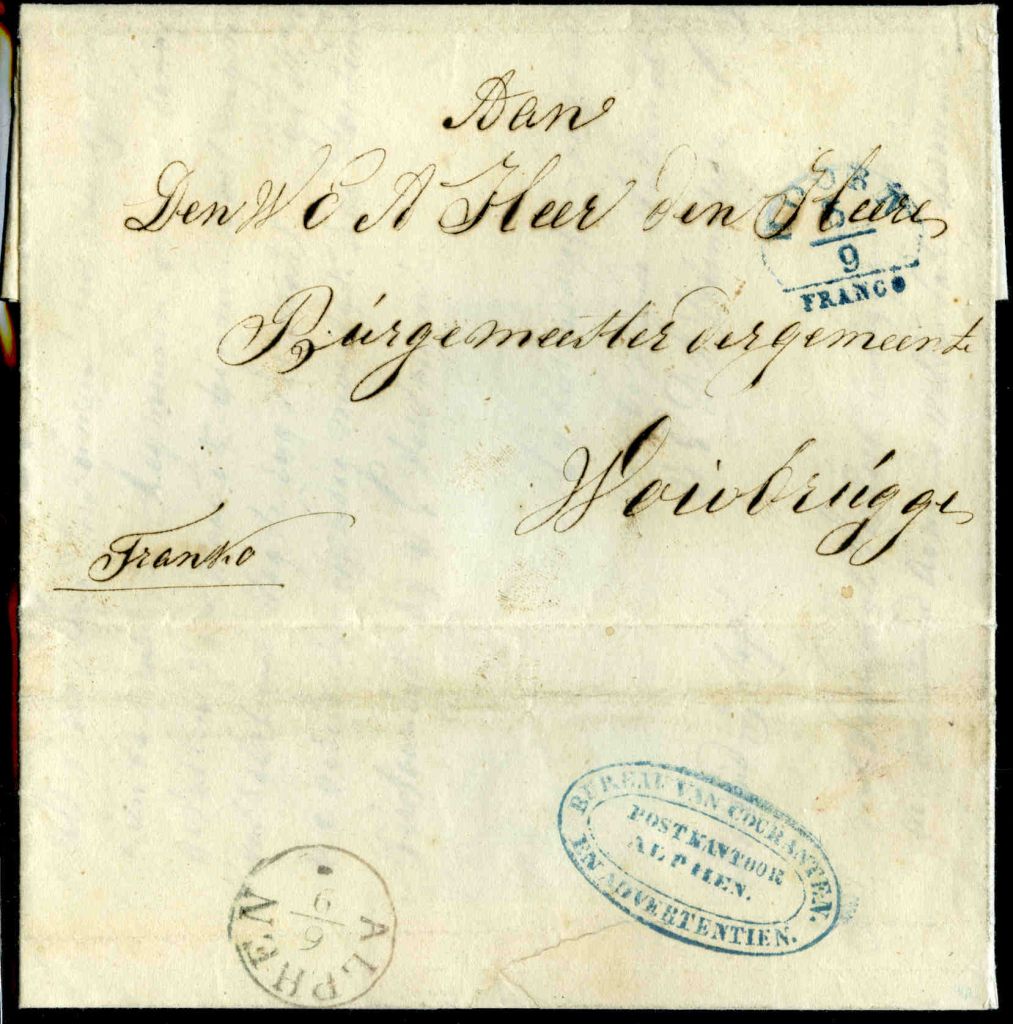 Aan
Den W E A Heer den Heere
Búrgemeester der gemeente
Woubrúgge
Franko
6
9
FRANCO
BUREAU VAN COURANTEN.
POSTKANTOOR
ALPHEN.
EN ADVERTENTIEN.
ALPHEN
6
9